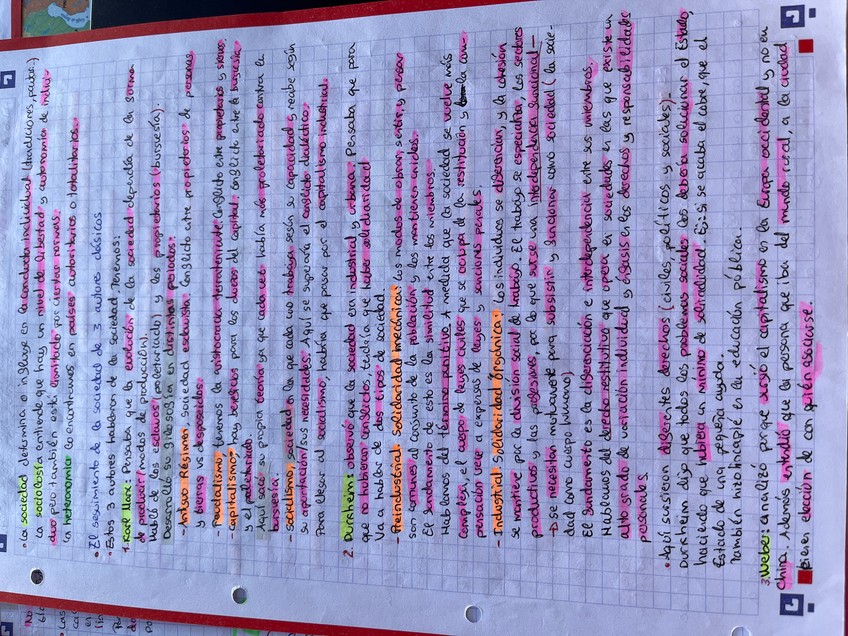 • La sociedad determina o influye en la conducta individual (tradiciones, pautas)
La sociología entiende que hay un nivel de libertad y autonomía de indivi-
duo pero también está limitado por ciertas normas.
La heteronomía la encontramos en países autoritarios o totalitarios.
• El seguimiento de la sociedad de 3 autores clásicos
- Estos 3 autores hablaron de la sociedad. Tenemos:
1. Karl Marx: Pensaba que la evolución de la sociedad dependía de la forma
de producir (modos de producción).
Habló de los esclavos (proletariado) y los propietarios (burguesía).
Desarrolló su filosofía en distintos periodos:
- Antiguo Régimen, sociedad esclavista. Conflicto entre propietarios de personas
y tierras vs desposeídos.
- Feudalismo, tenemos la aristocracia terrateniente. Conflicto entre propietarios y siervos.
- Capitalismo, hay beneficios para los dueños del capital. Conflicto entre la burguesía
y el proletariado.
Aquí sacó su propia teoría ya que cada vez había más proletariado contra la
burguesía.
- Socialismo, sociedad en la que cada uno trabaja según su capacidad y recibe según
su aportación/sus necesidades. Aquí se superaría el conflicto dialéctico.
Para llegar al socialismo, habría que pasar por el capitalismo industrial.
2. Durcheim: observó que la sociedad era industrial y urbana. Pensaba que para
que no hubieran conflictos, tendría que haber solidaridad
Va a haber de dos tipos de sociedad.
- Preindustrial. Solidaridad mecánica: Los modos de obrar, sentir y pensar
son comunes al conjunto de la población y los mantienen unidos.
El fundamento de esto es la similitud entre los miembros.
Hablamos del término punitivo. A medida que la sociedad se vuelve más
compleja, el cuerpo de leyes civiles que se ocupa de la restitución y la com-
pensación crece a expensas de leyes y sanciones penales.
- Industrial. Solidaridad orgánica: Los individuos se diferencian, y la cohesión
se mantiene por la división social de trabajo. El trabajo se especializa, los sectores
productivos y las profesiones, por lo que surge una interdependencia funcional –
→ se necesitan mutuamente para subsistir y funcionar como sociedad (la socie-
dad como cuerpo humano)
El fundamento es la diferenciación e interdependencia entre sus miembros.
Hablamos del derecho restitutivo que opera en sociedades en las que existe un
alto grado de variación individual y énfasis en los derechos y responsabilidades
personales.
• Aquí surgieron diferentes derechos (civiles, políticos y sociales).
Durcheim dijo que todos los problemas sociales los debería solucionar el Estado,
haciendo que hubiera un mínimo de solidaridad. Ej: si se acaba el cobre, que el
Estado de una pequeña ayuda.
También hizo hincapié en la educación pública.
3. Weber: analizó porque surgió el capitalismo en la Europa occidental y no en
China. Además estudió que la persona que iba del mundo rural, a la ciudad
tienen elección de con quién asociarse.